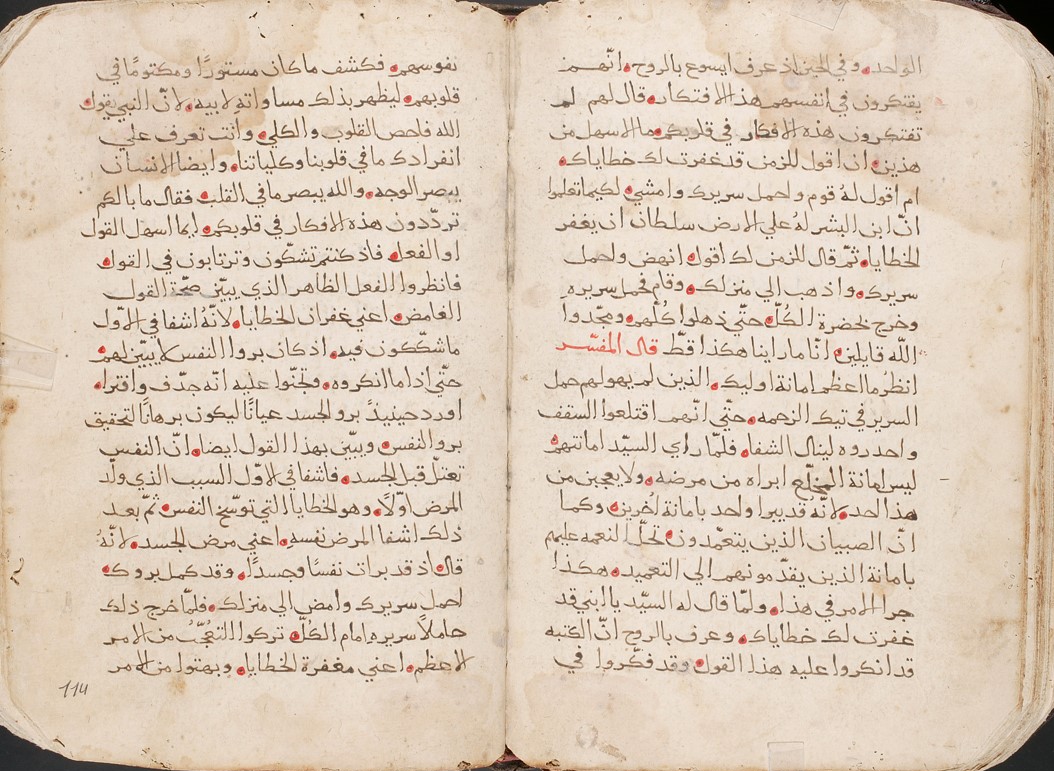 الواحد، وفي الحين اذ عرف ايسوع بالروح، انّهم
يفتكرون في انفسهم هذا الافتكار، قال لهم لم
تفتكرون هذه الافكار في قلوبكم، ما الاسهل من
هذين، ان اقول للزمن قد غفرت لك خطاياك،
ام اقول لهُ قوم واحمل سريرك وامشي، لكيما تعلموا
انّ ابن البشر لهُ علي الارض سلطان ان يغفر
الخطايا، ثمّ قال للزمن لك اقول، انهض واحمل
سريرك، واذهب الي منزلك، وقام فحمل سريره
وخرج بحضرة الكلّ، حتّي ذهلوا كُلّهم، ومجّدوا
اللّه قايلين، انّا ما راينا هكذا قطّ قال المفسّر
انظرُ ما اعظم امانة اوليك، الذين لم يهولهم حمل
السرير في تيك الزحمه، حتّي انّهم اقتلعوا السقف
واحدروه لينال الشفا، فلمّا راي السيّد امانتهم،
ليس امانة المخلّع ابراه من مرضه، ولا يعجبن من
هذا احد، لانّه قد يبرا واحد بامانة اُخرين، وكما
انّ الصبيان الذين يتعمّدون، تحلّ النعمه عليهم
بامانة الذين يقدّمونهم الي التعميد، هكذا
جرا الامر في هذا، ولمّا قال له السيّد يا ابني قد
غفرت لك خطاياك، وعرف بالروح انّ الكتبه
قد انكروا عليه هذا القول، وقد فكّروا في
نفوسهم، فكشف ما كان مستورًا ومكتومًا في
قلوبهم، ليظهر بذلك مساواته لابيه، لانّ النبي يقول،
اللّه فاحص القلوب والكلي، وانت تعرف علي
انفرادك ما في قلوبنا وكلياتنا، وايضا الانسان
يبصر الوجه، واللّه يبصر ما في القلب، فقال ما بالكم
تردّدون هذه الافكار في قلوبكم، ايما اسهل القول
او الفعل، فاذ كنتم تشكّون وترتابون في القول،
فانظروا الفعل الظاهر الذي يبيّن صحّة القول
الغامض، اعني غفران الخطايا، لانّهُ اشفا في الاوّل
ما شكّكون فيه، اذ كان بروا النفس لا يبيّن لهم،
حتّي اذا ما انكروه، وتجنّوا عليه انّه جدّف وافترا،
اورد حينيذٍ برو الجسد عيانًا ليكون برهانًا لتحقيق
برو النفس، ويبيّن بهذا القول ايضا، انّ النفس
تعتلّ قبل الجسد، فاشفا في الاوّل السبب الذي ولّد
المرض اوّلاً، وهو الخطايا التي توسّخ النفس، ثمّ بعد
ذلك اشفا المرض نفسهِ، اعني مرض الجسد، لانّهُ
قال، اذ قد برات نفسًا وجسدًا، وقد كمل بروك،
احمل سريرك وامض الي منزلك، فلمّا خرج ذلك
حاملاً سريره امام الكُلّ، تركوا التعُجّبُ من الامر
الاعظم، اعني مغفرة الخطايا، وبهتوا من الامر
114